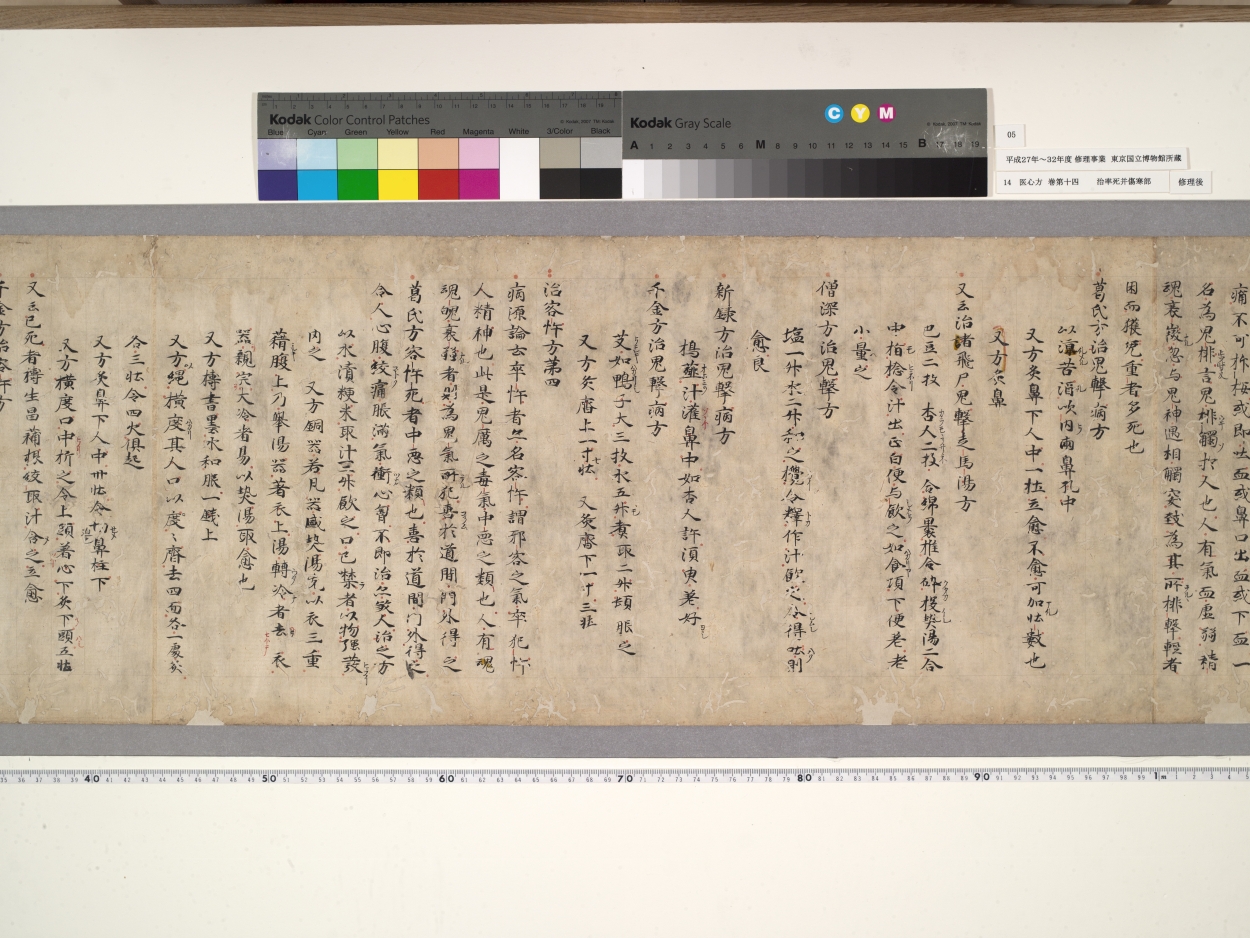 Kodak Color Control Patches
Blue Cyan Green Yellow Red Magenta White 3/Color Black
Kodak Gray Scale
C Y M
A 1 2 3 4 5 6 M 8 9 10 11 12 13 14 15 B 17 18 19
05
平成27年～32年度 修理事業 東京国立博物館所蔵
14 医心方 巻第十四 治卒死并傷寒部
修理後
痛不可抑按或即吐血或鼻口出血或下血一
名為鬼排言鬼排觸於人也人有氣血虛弱精
魂衰微忽与鬼神遇相觸突致為其所排擊輕者
困而獲免重者多死也
葛氏方治鬼擊病方
以淳苦酒吹內兩鼻孔中
又方灸鼻下人中一壯立愈不愈可加壯數也
又方灸鼻
又云治諸飛尸鬼擊走馬湯方
巴豆二枚 杏人二枚 合綿裹椎令碎投熱湯二合
中指捻令汁出正白便与飲之如食頃下便老
小量之
僧深方治鬼擊方
塩一升水二升和之攪令釋作汁飲之令得吐則
愈良
新錄方治鬼擊病方
搗蘇汁灌鼻中如杏人許須臾差好
千金方治鬼擊病方
艾如鴨子大三枚水五升煮取二升頓服之
又方灸齊上一寸七壯 又灸齊下一寸三壯
治客忤方第四
病源論云卒忤者亦名客忤謂邪客之氣卒犯忤
人精神也此是鬼厲之毒氣中惡之類也人有魂
魄衰弱者則為鬼氣所犯忤喜於道間門外得之
葛氏方客忤死者中惡之類也喜於道間門外得之
令人心腹絞痛脹滿氣衝心胷不即治亦煞人治之方
以水漬粳米取汁二升飲之口已禁者以物強發
內之 又方銅器若凡器盛熱湯先以衣三重
藉腹上乃舉湯器著衣上湯轉冷者去衣
器親宍大冷者易以熱湯取愈也
又方擣書墨水和服一錢上
又方繩橫度其人口以度度齊去四面各一處灸
各三壯令四火俱起
又方灸鼻下人中卅壯令切鼻柱下
又方橫度口中折之令上頭著心下灸下頭五壯
又云已死者擣生昌蒲根絞取汁含之立愈
千金方治客忤方
40 50 60 70 80 90 1m